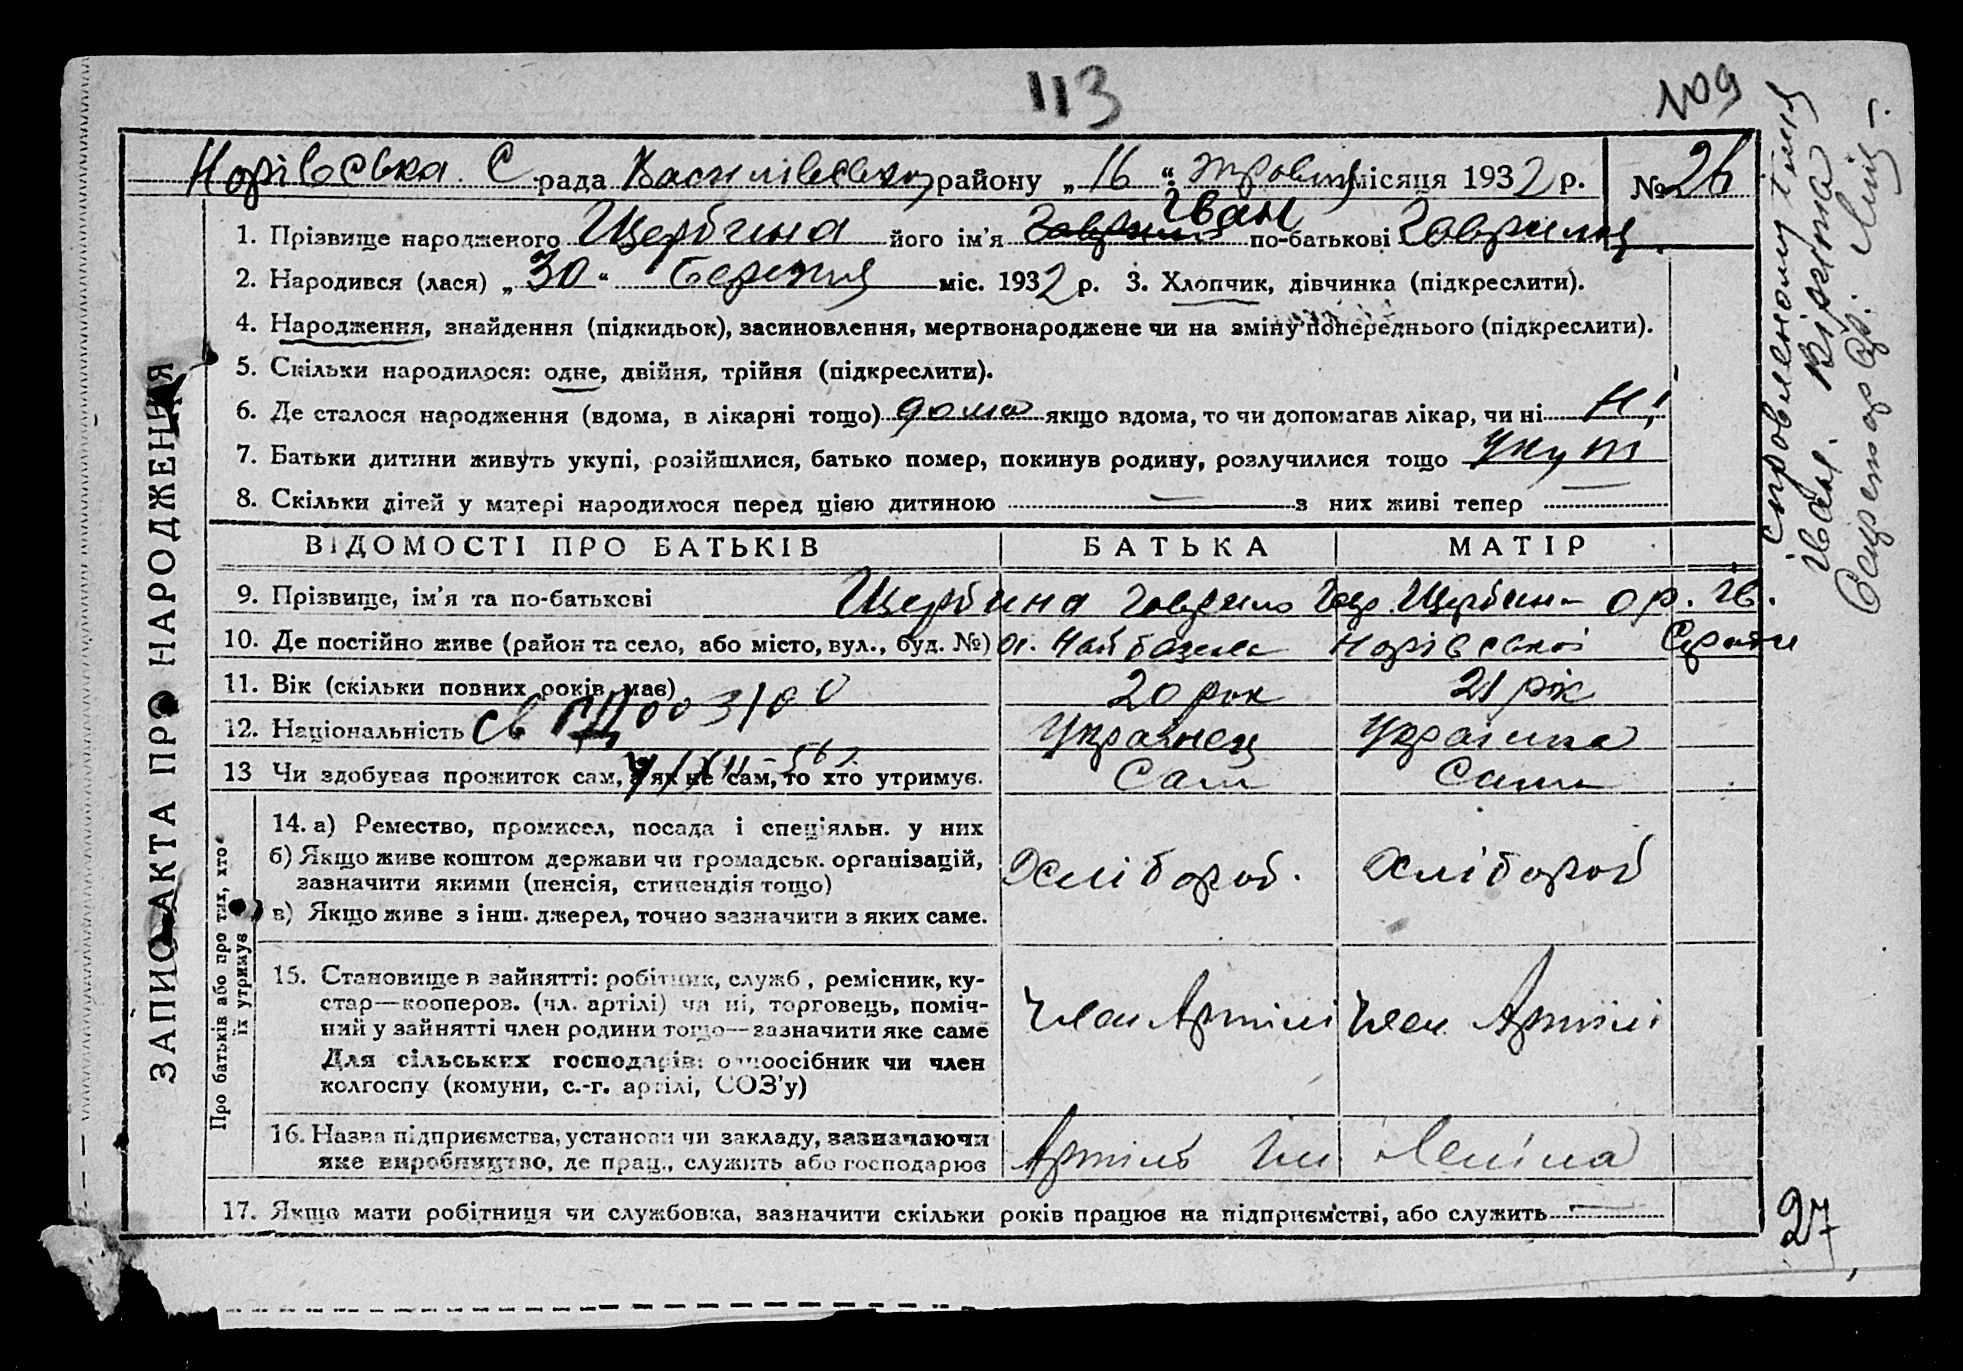 113
109
Норівська С. рада Василівського району „ 16 “ травня місяця 1932 р. № 26
1. Прізвище народженого Щербина його ім'я Гаврило Іван по-батькові Гаврилов
2. Народився (лася) „ 30 “ березня міс. 1932 р. 3. Хлопчик, дівчинка (підкреслити).
4. Народження, знайдення (підкидьок), засиновлення, мертвонароджене чи на зміну попереднього (підкреслити).
5. Скільки народилося: одне, двійня, трійня (підкреслити).
6. Де сталося народження (вдома, в лікарні тощо) дома якщо вдома, то чи допомагав лікар, чи ні Ні
7. Батьки дитини живуть укупі, розійшлися, батько помер, покинув родину, розлучилися тощо укупі
8. Скільки дітей у матері народилося перед цією дитиною — з них живі тепер —
ВІДОМОСТІ ПРО БАТЬКІВ БАТЬКА МАТІР
9. Прізвище, ім'я та по-батькові Щербина Гаврило Гавр Щербина ор. Ів.
10. Де постійно живе (район та село, або місто, вул., буд. №) Норівської Сради
11. Вік (скільки повних років має) 20 рок 21 рік
12. Національність Українец Українка
св ГД 003100
13 Чи здобуває прожиток сам, а як не сам, то хто утримує. Сам Сама
14. а) Ремество, промисел, посада і спеціяльн. у них
б) Якщо живе коштом держави чи громадськ. організацій,
зазначити якими (пенсія, стипендія тощо)
в) Якщо живе з інш. джерел, точно зазначити з яких саме.
Хлібороб. Хлібороб
15. Становище в зайнятті: робітник, служб., ремісник, ку-
стар—кооперов. (чл. артілі) чи ні, торговець, поміч-
ний у зайнятті член родини тощо—зазначити яке саме
Для сільських господарів: одноосібник чи член
колгоспу (комуни, с.-г. артілі, СОЗ'у)
Член Артілі Член Артілі
16. Назва підприємства, установи чи закладу, зазначаючи
яке виробництво, де прац., служить або господарює
Артіль Ім Леніна
17. Якщо мати робітниця чи службовка, зазначити скільки років працює на підприємстві, або служить —
ЗАПИС АКТА ПРО НАРОДЖЕННЯ
Про батьків або про тих, хто
їх утримує
справленому
Іван. Вірити
Секретар
27